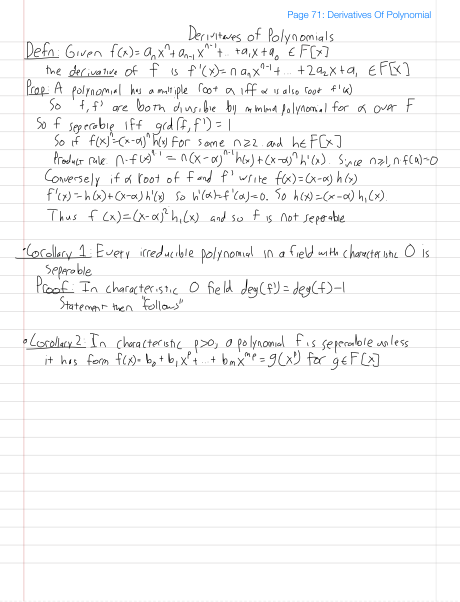 Page 71: Derivatives Of Polynomial
Derivitaves of Polynomials
Defn: Given f(x)= aₙxⁿ+aₙ₋₁xⁿ⁻¹+... +a₁x+a₀ ∈ F[x]
the derivative of f is f'(x)= n aₙxⁿ⁻¹+... +2a₂x+a₁ ∈ F[x]
Prop: A polynomial has a multiple root α iff α is also root f'(α)
So f, f' are both divisible by minimal polynomial for α over F
So f seperable iff gcd(f, f') = 1
So if f(x)=(x-α)ⁿh(x) for some n≥2 and h∈F[x]
Product rule n·f(x)ⁿ⁻¹ = n(x-α)ⁿ⁻¹h(x)+(x-α)ⁿh'(x). Since n≥1, n f(α)=0
Conversely if α root of f and f' write f(x)=(x-α)h(x)
f'(x)=h(x)+(x-α)h'(x) so h'(α)=f'(α)=0. So h(x)=(x-α)h₁(x)
Thus f(x)=(x-α)²h₁(x) and so f is not seperable
•Corollary 1: Every irreducible polynomial in a field with characteristic 0 is
seperable
Proof: In characteristic 0 field deg(f')=deg(f)-1
Statement then "follows"
•Corollary 2: In characteristic p>0, a polynomial f is seperable unless
it has form f(x)= b₀+b₁xᵖ+... +bₘxᵐᵖ=g(xᵖ) for g∈F[x]